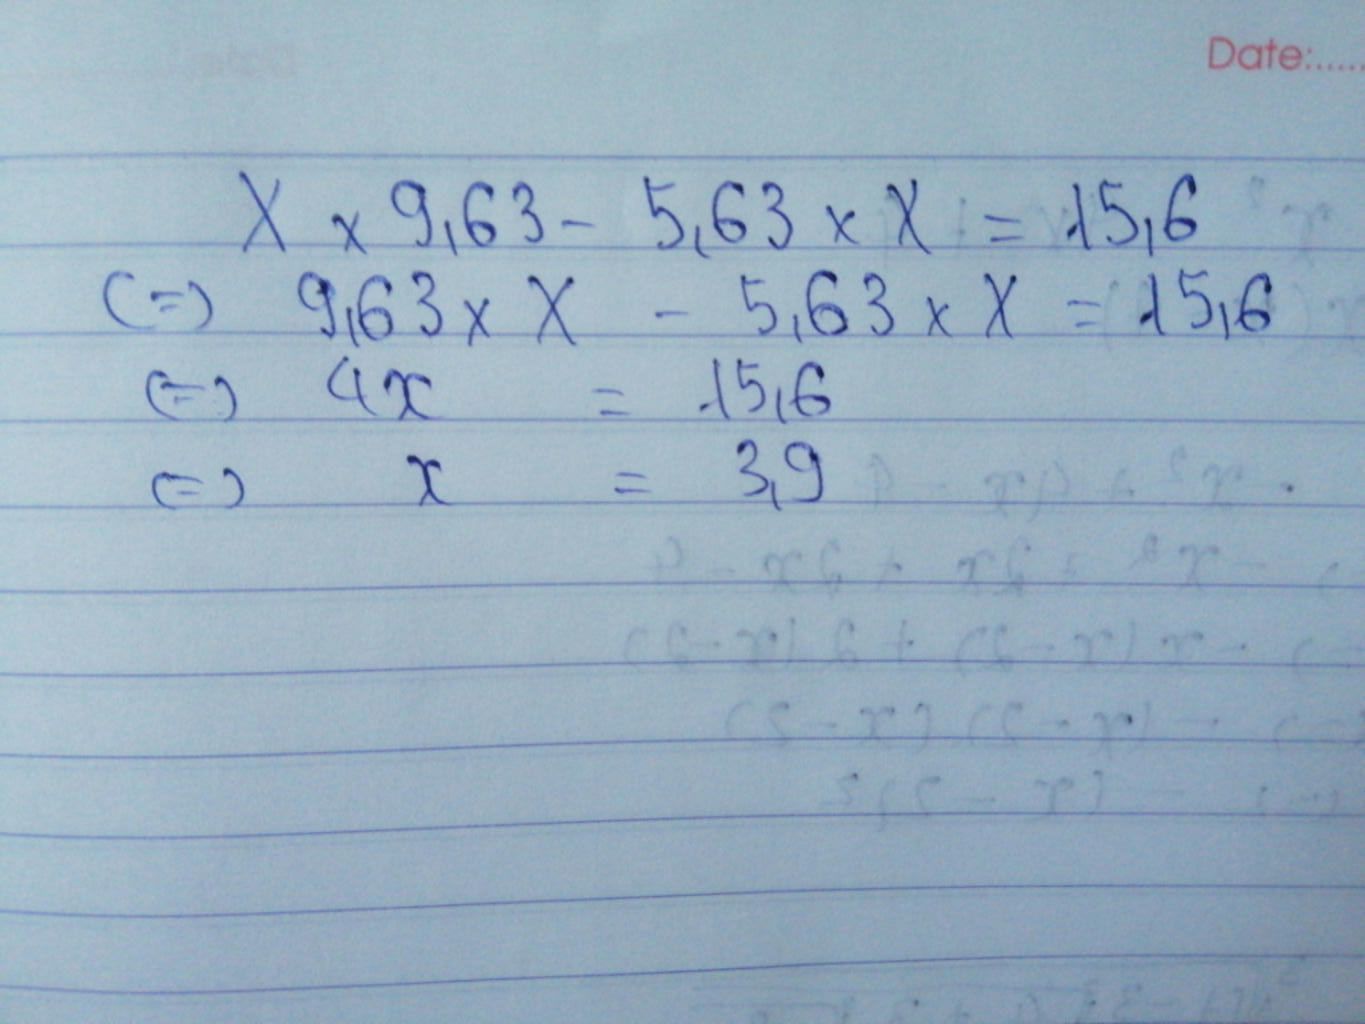 Date:.....
X x 9,63 - 5,63 x X = 15,6
(=) 9,63 x X - 5,63 x X = 15,6
(=) 4x = 15,6
(=) x = 3,9